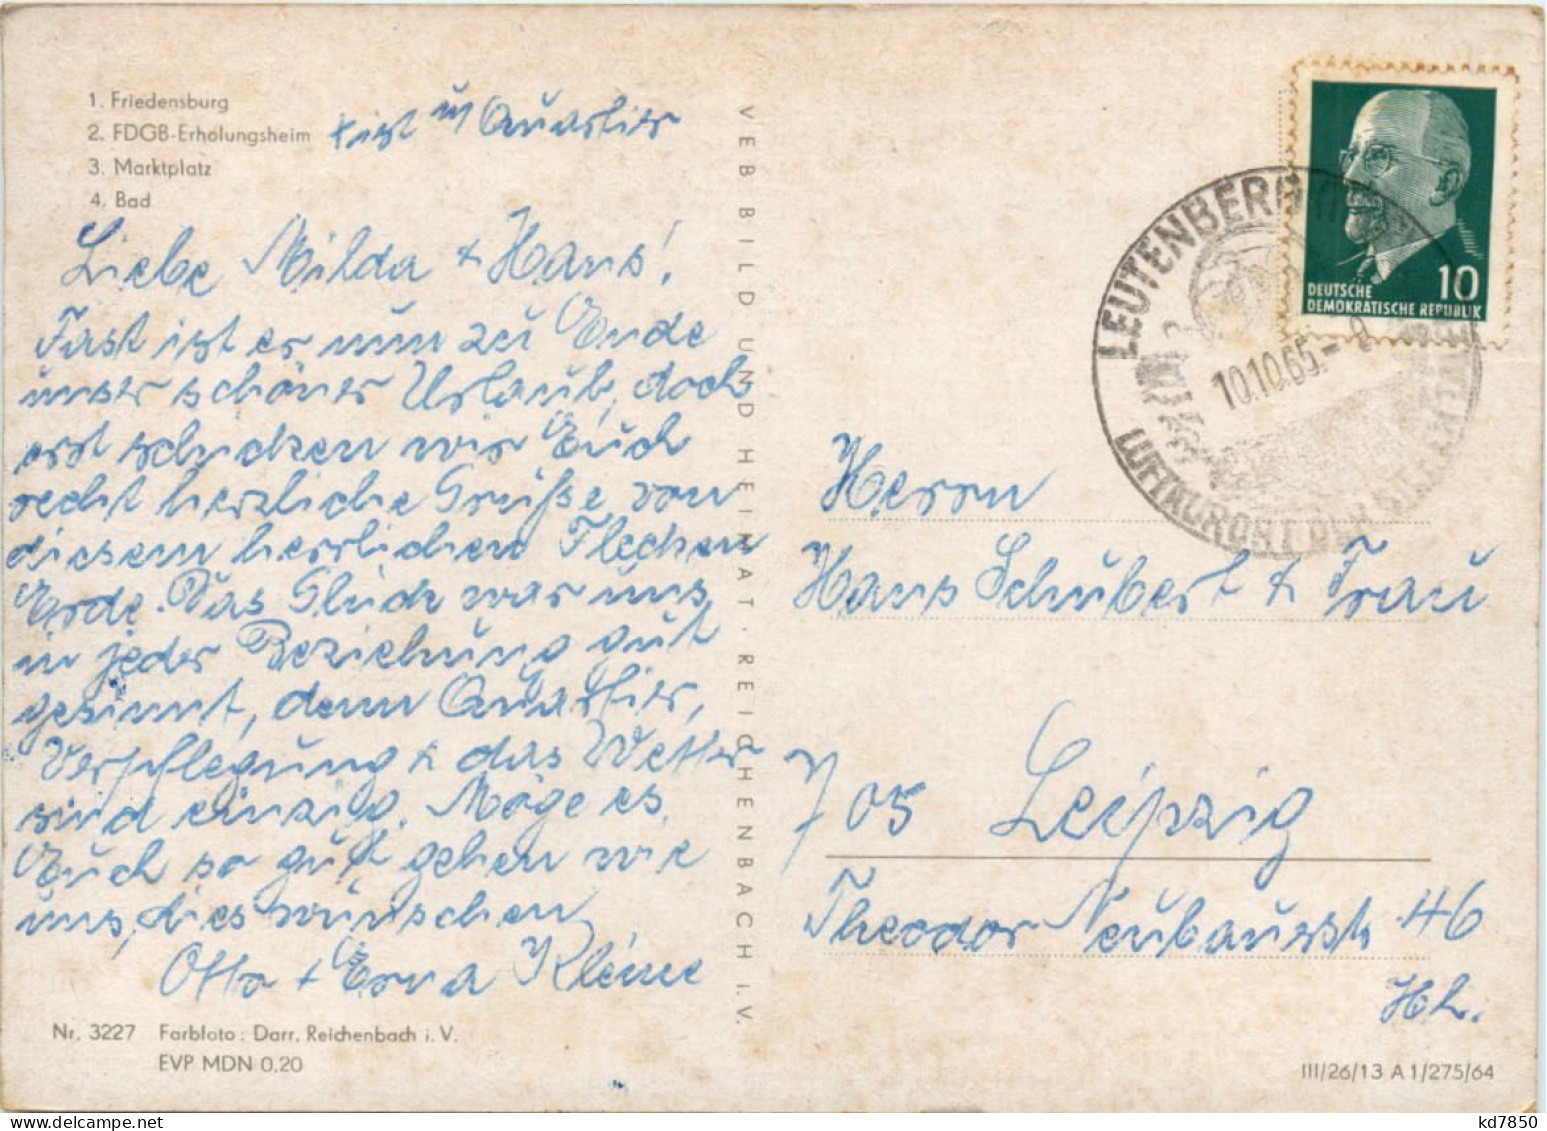 1. Friedensburg
2. FDGB-Erholungsheim
3. Marktplatz
4. Bad
ist uns. Quartier
Liebe Milda + Hans!
Fast ist es nun zu Ende
unser schöner Urlaub, doch
erst schicken wir Euch
recht herzliche Grüße von
diesem herrlichen Flecken
Erde. Das Glück war uns
in jeder Beziehung gut
gesinnt, denn Quartier,
Verpflegung + das Wetter
sind einzig. Möge es
Euch so gut gehen wie
uns, dies wünschen
Otto + Erna Kleine
Nr. 3227 Farbfoto: Darr, Reichenbach i. V.
EVP MDN 0.20
VEB BILD UND HEIMAT · REICHENBACH I. V.
DEUTSCHE
DEMOKRATISCHE REPUBLIK
10
LEUTENBERG
10.10.65.-9
LUFTKURORT DER
Herrn
Hans Schubert + Frau
705 Leipzig
Theodor Neubauerstr. 46
Hh.
III/26/13 A 1/275/64
kd7850